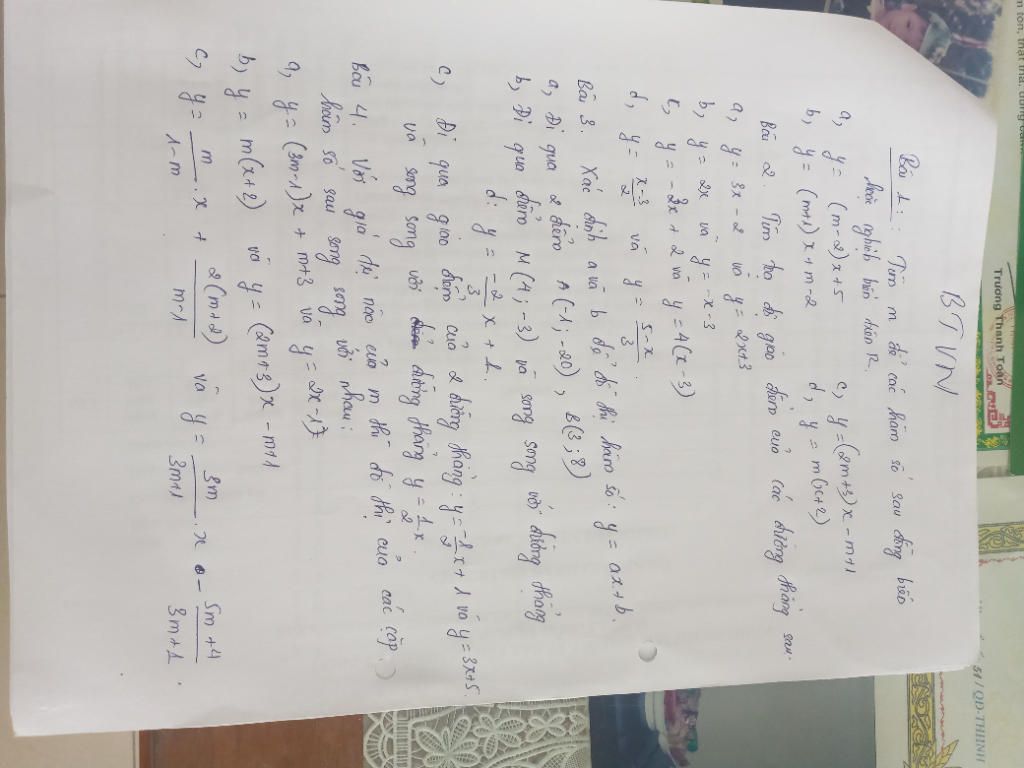 BTVN
Bài 1: Tìm m để các hàm số sau đồng biến
hoặc nghịch biến trên R.
a, y = (m-2)x+5
c, y=(2m+3)x-m+1
b, y = (m+1)x+m-2
d, y = m(x+2)
Bài 2. Tìm toạ độ giao điểm của các đường thẳng sau.
a, y = 3x-2 và y = 2x+3
b, y = 2x và y = -x-3
c, y = -3x+2 và y = 4(x-3)
d, y = x-3/2 và y = 5-x/3
Bài 3. Xác định a và b để đồ thị hàm số: y = ax+b.
a, Đi qua 2 điểm A(-1;-20), B(3;8)
b, Đi qua điểm M(4;-3) và song song với đường thẳng
d: y = -2/3 x + 1.
c, Đi qua giao điểm của 2 đường thẳng: y = -1/2 x+1 và y=3x+5.
và song song với đường thẳng y=1/2 x.
Bài 4. Với giá trị nào của m thì đồ thị của các cặp
hàm số sau song song với nhau:
a, y = (3m-1)x + m+3 và y = 2x-1
b, y = m(x+2) và y = (2m+3)x - m+1
c, y = m/1-m . x + 2(m+2)/m-1 và y = 3m/3m+1 . x - 5m+4/3m+1 .
Trương Thanh Toàn
51/QD-THNTH